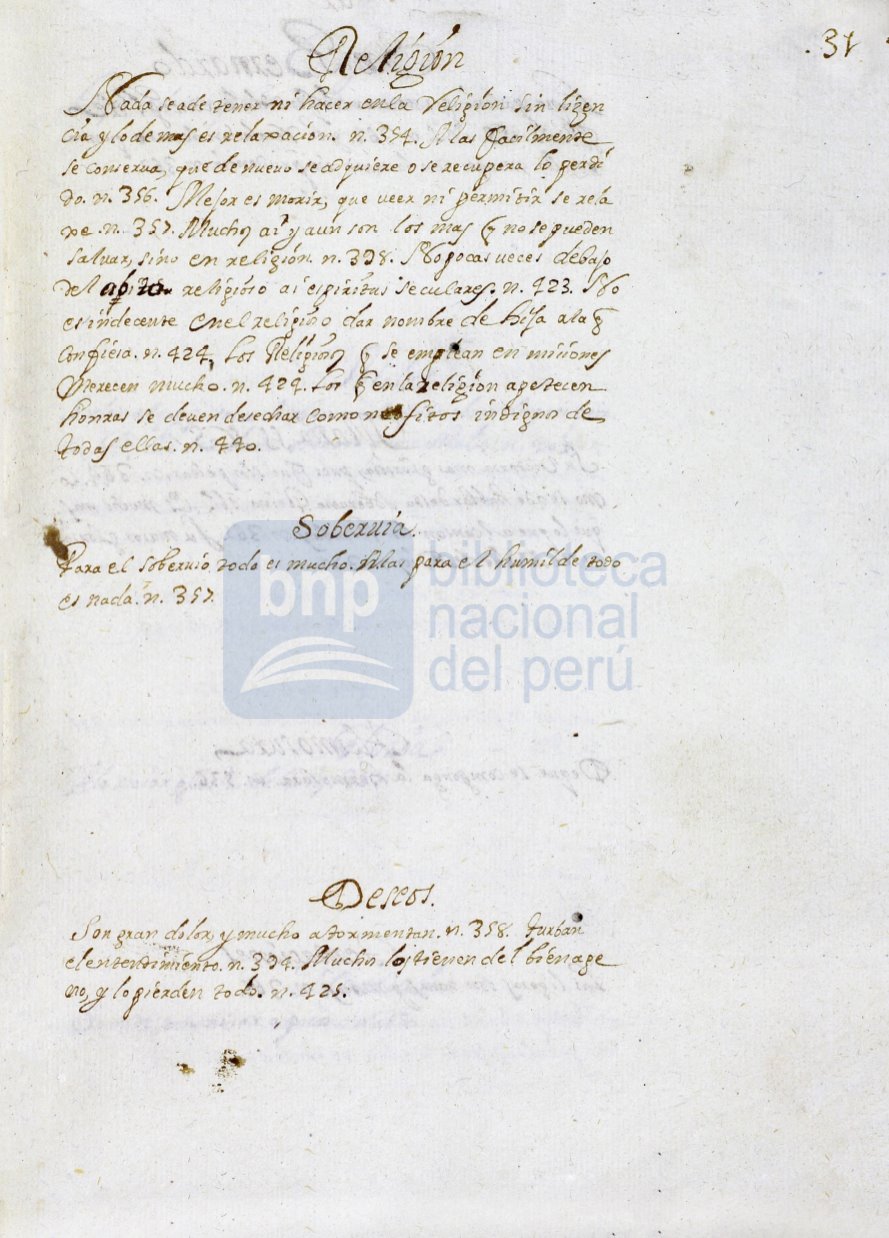 31
Religion
Nada se a de tener ni hacer en la religion sin lizen
cia y lo demas es relaxacion. n. 354. Mas facilmente
se conserua, que de nueuo se adquiere o se recupera lo perdi
do. n. 356. Mejor es morir, que veer ni permitir se rela
xe. n. 357. Muchos ai y aun son los mas q no se pueden
saluar, sino en religion. n. 398. No pocas veces debajo
del abito religioso ai espiritus seculares. n. 423. No
es indecente en el religioso dar nombre de hija a la q
confiesa. n. 424. Los Religiosos q se emplean en misiones
merecen mucho. n. 424. Los q en la religion apetecen
honras se deuen desechar como neofitos indignos de
todas ellas. n. 440.
Soberuia.
Para el soberuio todo es mucho. Mas para el humilde todo
es nada. n. 357.
bnp biblioteca
nacional
del perú
Deseos.
Son gran dolor, y mucho atormentan. n. 358. turban
el entendimiento. n. 394. Muchos los tienen del bien age
no, y lo pierden todo. n. 425.